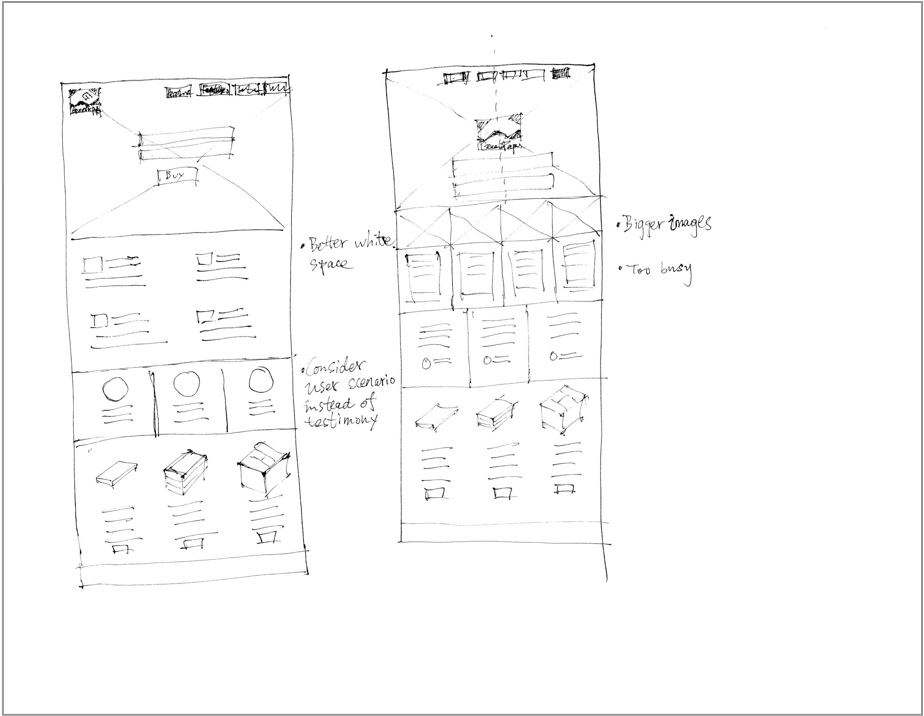 Features
Buy
• Better white
space
• Consider
user scenario
instead of
testimony
• Bigger images
• Too busy